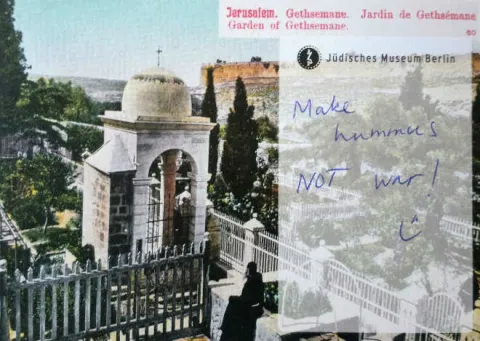 Jerusalem. Gethsemane. Jardin de Gethsémane
Garden of Gethsemane.
60
Jüdisches Museum Berlin
Make
hummus
NOT war!